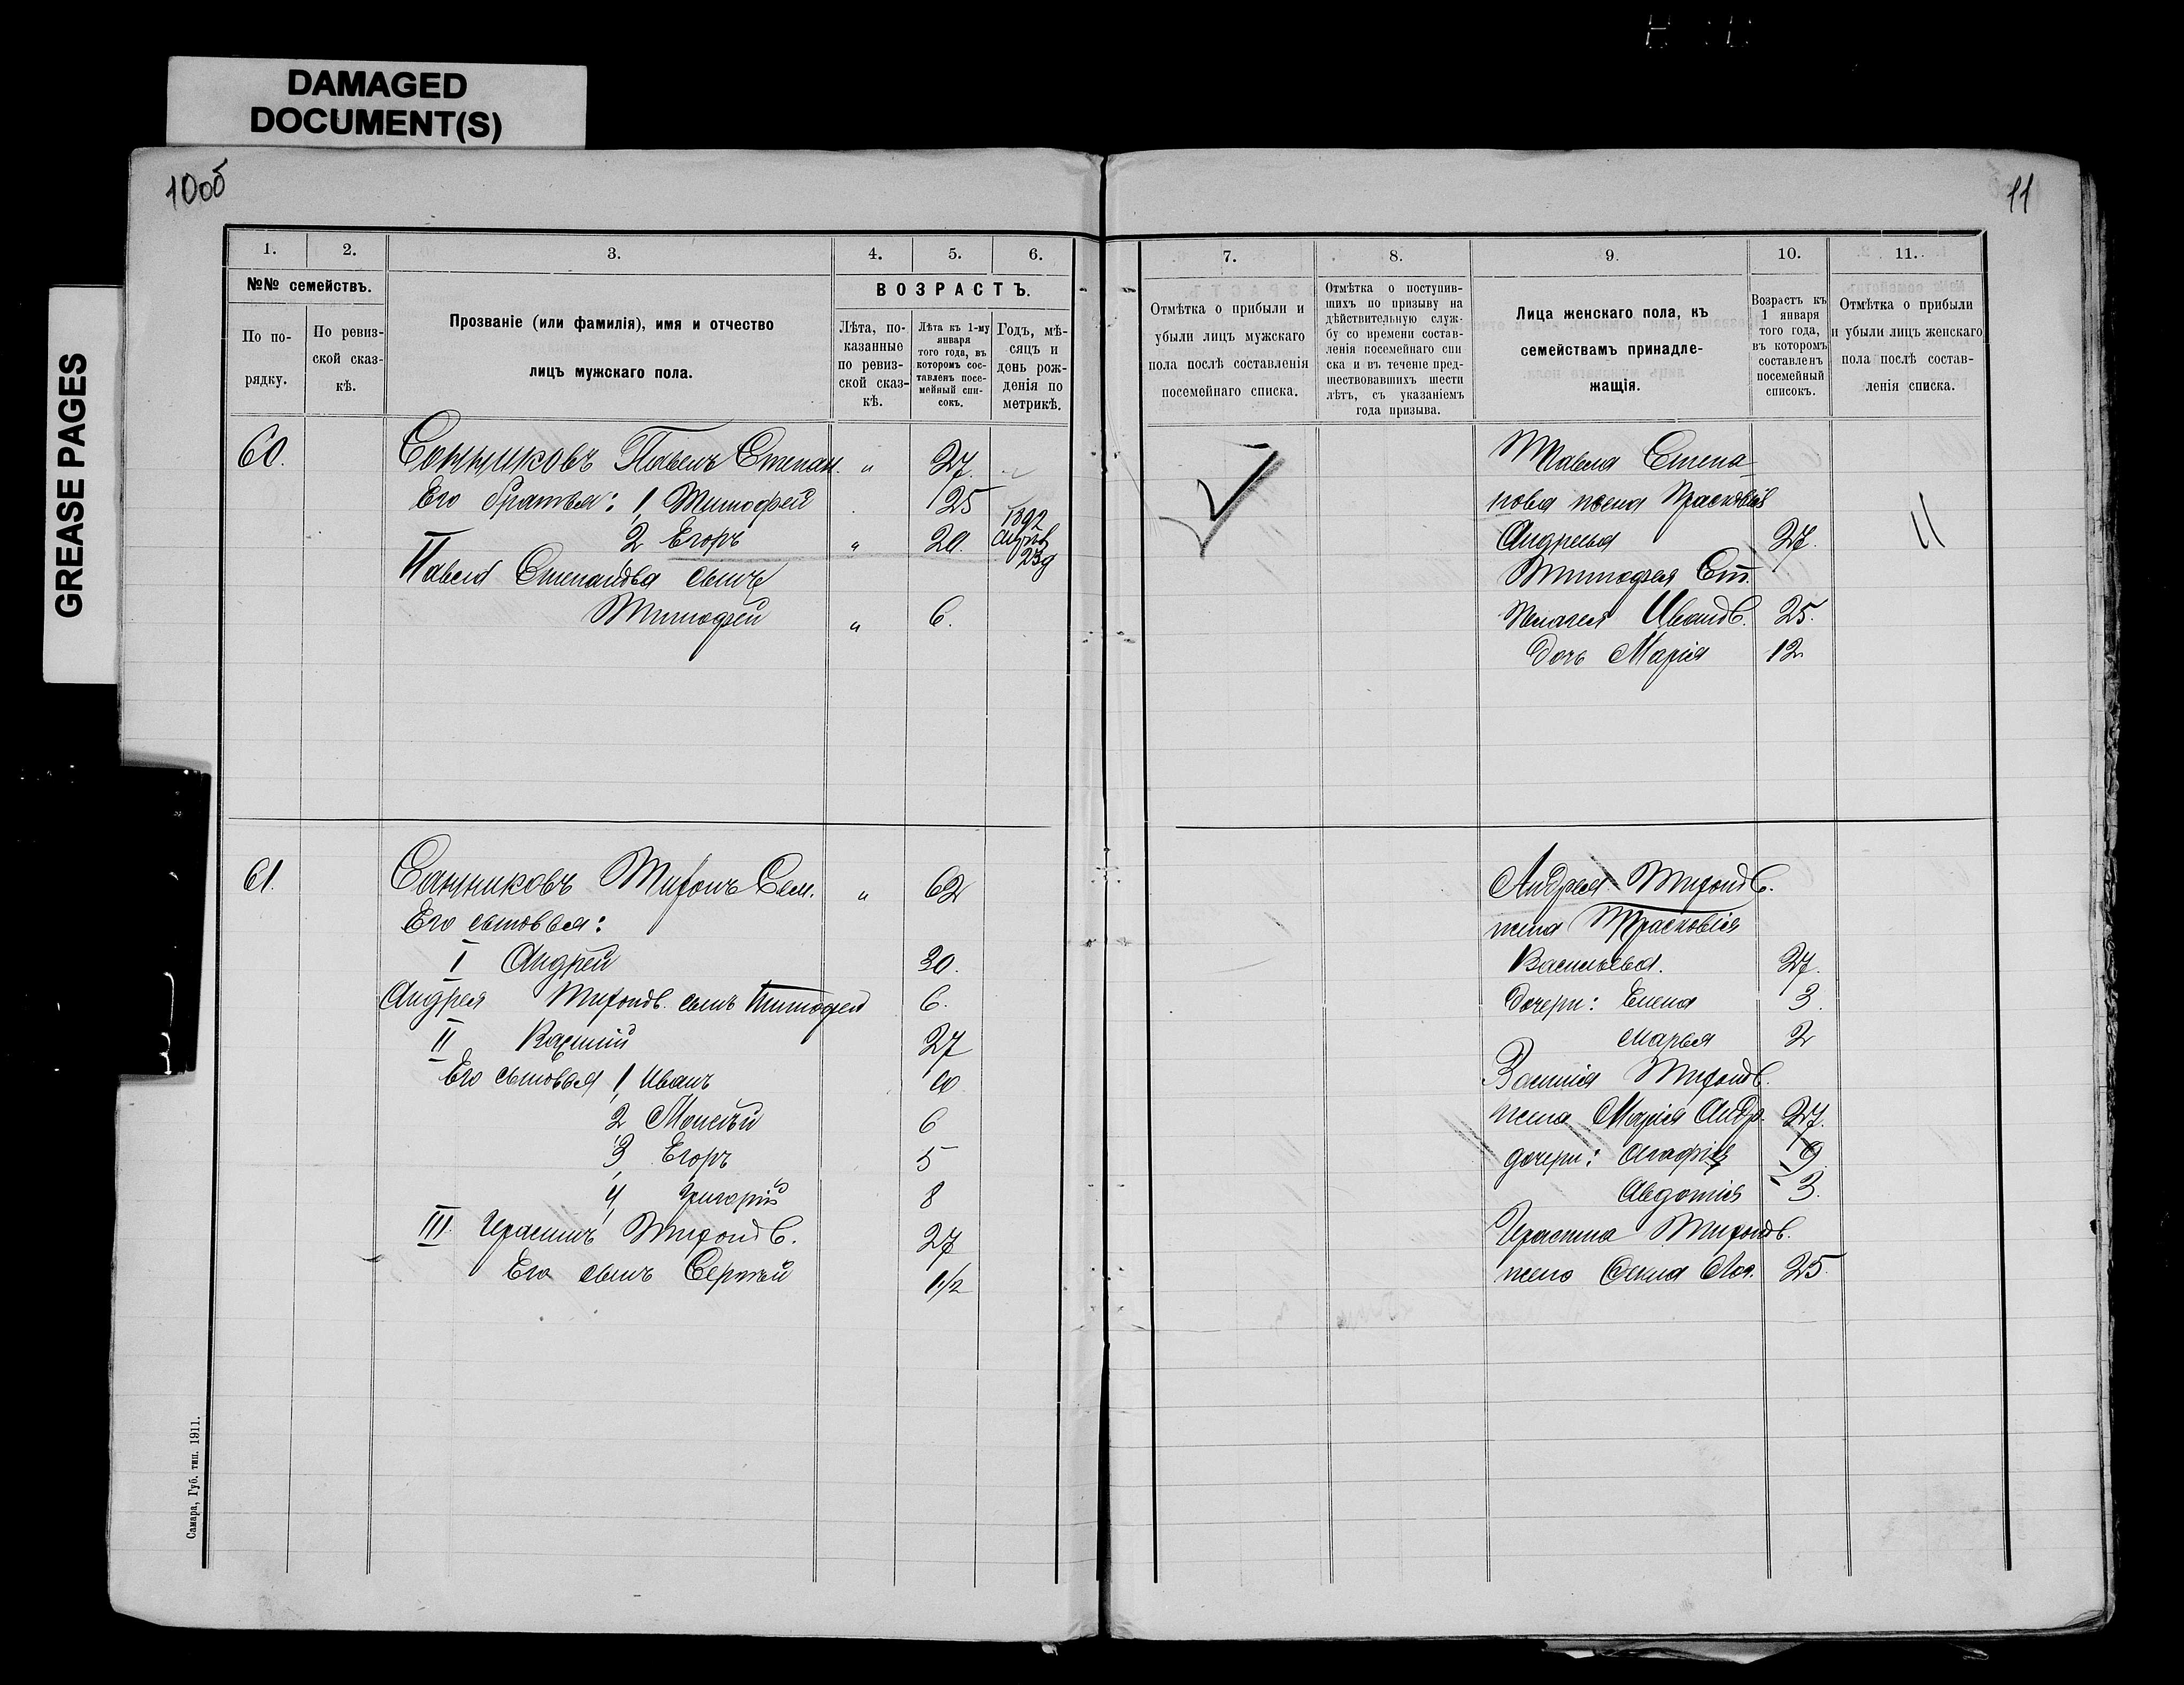 DAMAGED
DOCUMENT(S)
GREASE PAGES
10об
11
1. 2. 3. 4. 5. 6.
№№ семействъ.
По по-
рядку.
По ревиз-
ской сказ-
кѣ.
Прозваніе (или фамилія), имя и отчество
лицъ мужскаго пола.
ВОЗРАСТЪ.
Лѣта, по-
казанные
по ревиз-
ской сказ-
кѣ.
Лѣта къ 1-му
января
того года, въ
которомъ сос-
тавленъ посе-
мейный спи-
сокъ.
Годъ, мѣ-
сяцъ и
день рож-
денія по
метрикѣ.
60. Санниковъ Павелъ Степан. „ 27.
Его братья: 1, Тимофей 25
2 Егоръ „ 20. 1892
23
Павла Степанова сынъ
Тимофей „ 6.
61. Санниковъ Тифонъ Сем. „ 62
Его сыновья:
I Андрей 30.
Андрея Тифонов. сынъ Тимофей 6.
II Василій 27
Его сыновья 1, Иванъ 10
2, Моисей 6
3, Егоръ 5
4, Григорій 8
III. Герасимъ Тифонов. 27
Его сынъ Сергѣй 1 1/2
Самара, Губ. тип. 1911.
7. 8. 9. 10. 11.
Отмѣтка о прибыли и
убыли лицъ мужскаго
пола послѣ составленія
посемейнаго списка.
Отмѣтка о поступив-
шихъ по призыву на
дѣйствительную служ-
бу со времени состав-
ленія посемейнаго спи
ска и въ теченіе пред-
шествовавшихъ шести
лѣтъ, съ указаніемъ
года призыва.
Лица женскаго пола, къ
семействамъ принадле-
жащія.
Возрастъ къ
1 января
того года,
въ которомъ
составленъ
посемейный
списокъ.
Отмѣтка о прибыли
и убыли лицъ женскаго
пола послѣ состав-
ленія списка.
Павла Степа
нова жена Прасковія
Андреева 27.
Тимофея Ст.
Пелагея Иванов. 25.
дочь Марія 12
Андрея Тифонов.
жена Прасковія
Васильева. 27.
дочери: Елена 3.
Марья 2
Василія Тифонов.
жена Марія Андр. 27.
дочери: Агафія 9
Авдотія 3.
Герасима Тифонов.
жена 25.